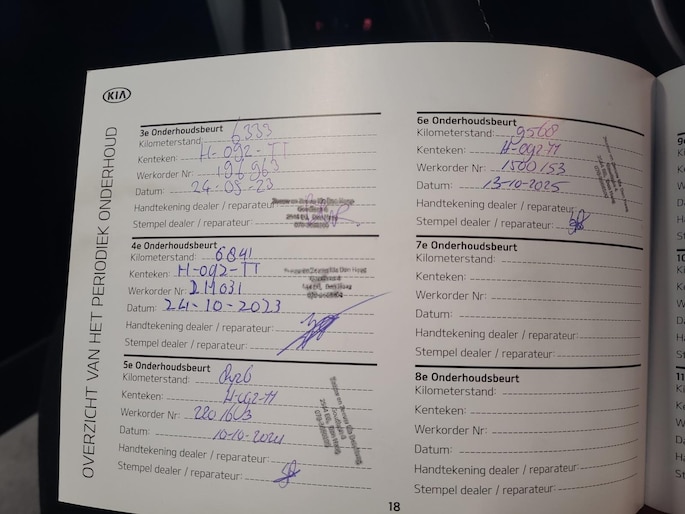 KIA
OVERZICHT VAN HET PERIODIEK ONDERHOUD
3e Onderhoudsbeurt
Kilometerstand: 6333
Kenteken: H-092-TT
Werkorder Nr: 196963
Datum: 24-05-23
Handtekening dealer / reparateur:
Stempel dealer / reparateur:
4e Onderhoudsbeurt
Kilometerstand: 6841
Kenteken: H-092-TT
Werkorder Nr: DM031
Datum: 24-10-2023
Handtekening dealer / reparateur:
Stempel dealer / reparateur:
5e Onderhoudsbeurt
Kilometerstand:
Kenteken: H-092-TT
Werkorder Nr: 2201603
Datum: 10-10-2024
Handtekening dealer / reparateur:
Stempel dealer / reparateur:
6e Onderhoudsbeurt
Kilometerstand: 9568
Kenteken: H-092-TT
Werkorder Nr: 1500153
Datum: 13-10-2025
Handtekening dealer / reparateur:
Stempel dealer / reparateur:
7e Onderhoudsbeurt
Kilometerstand:
Kenteken:
Werkorder Nr:
Datum:
Handtekening dealer / reparateur:
Stempel dealer / reparateur:
8e Onderhoudsbeurt
Kilometerstand:
Kenteken:
Werkorder Nr:
Datum:
Handtekening dealer / reparateur:
Stempel dealer / reparateur:
18